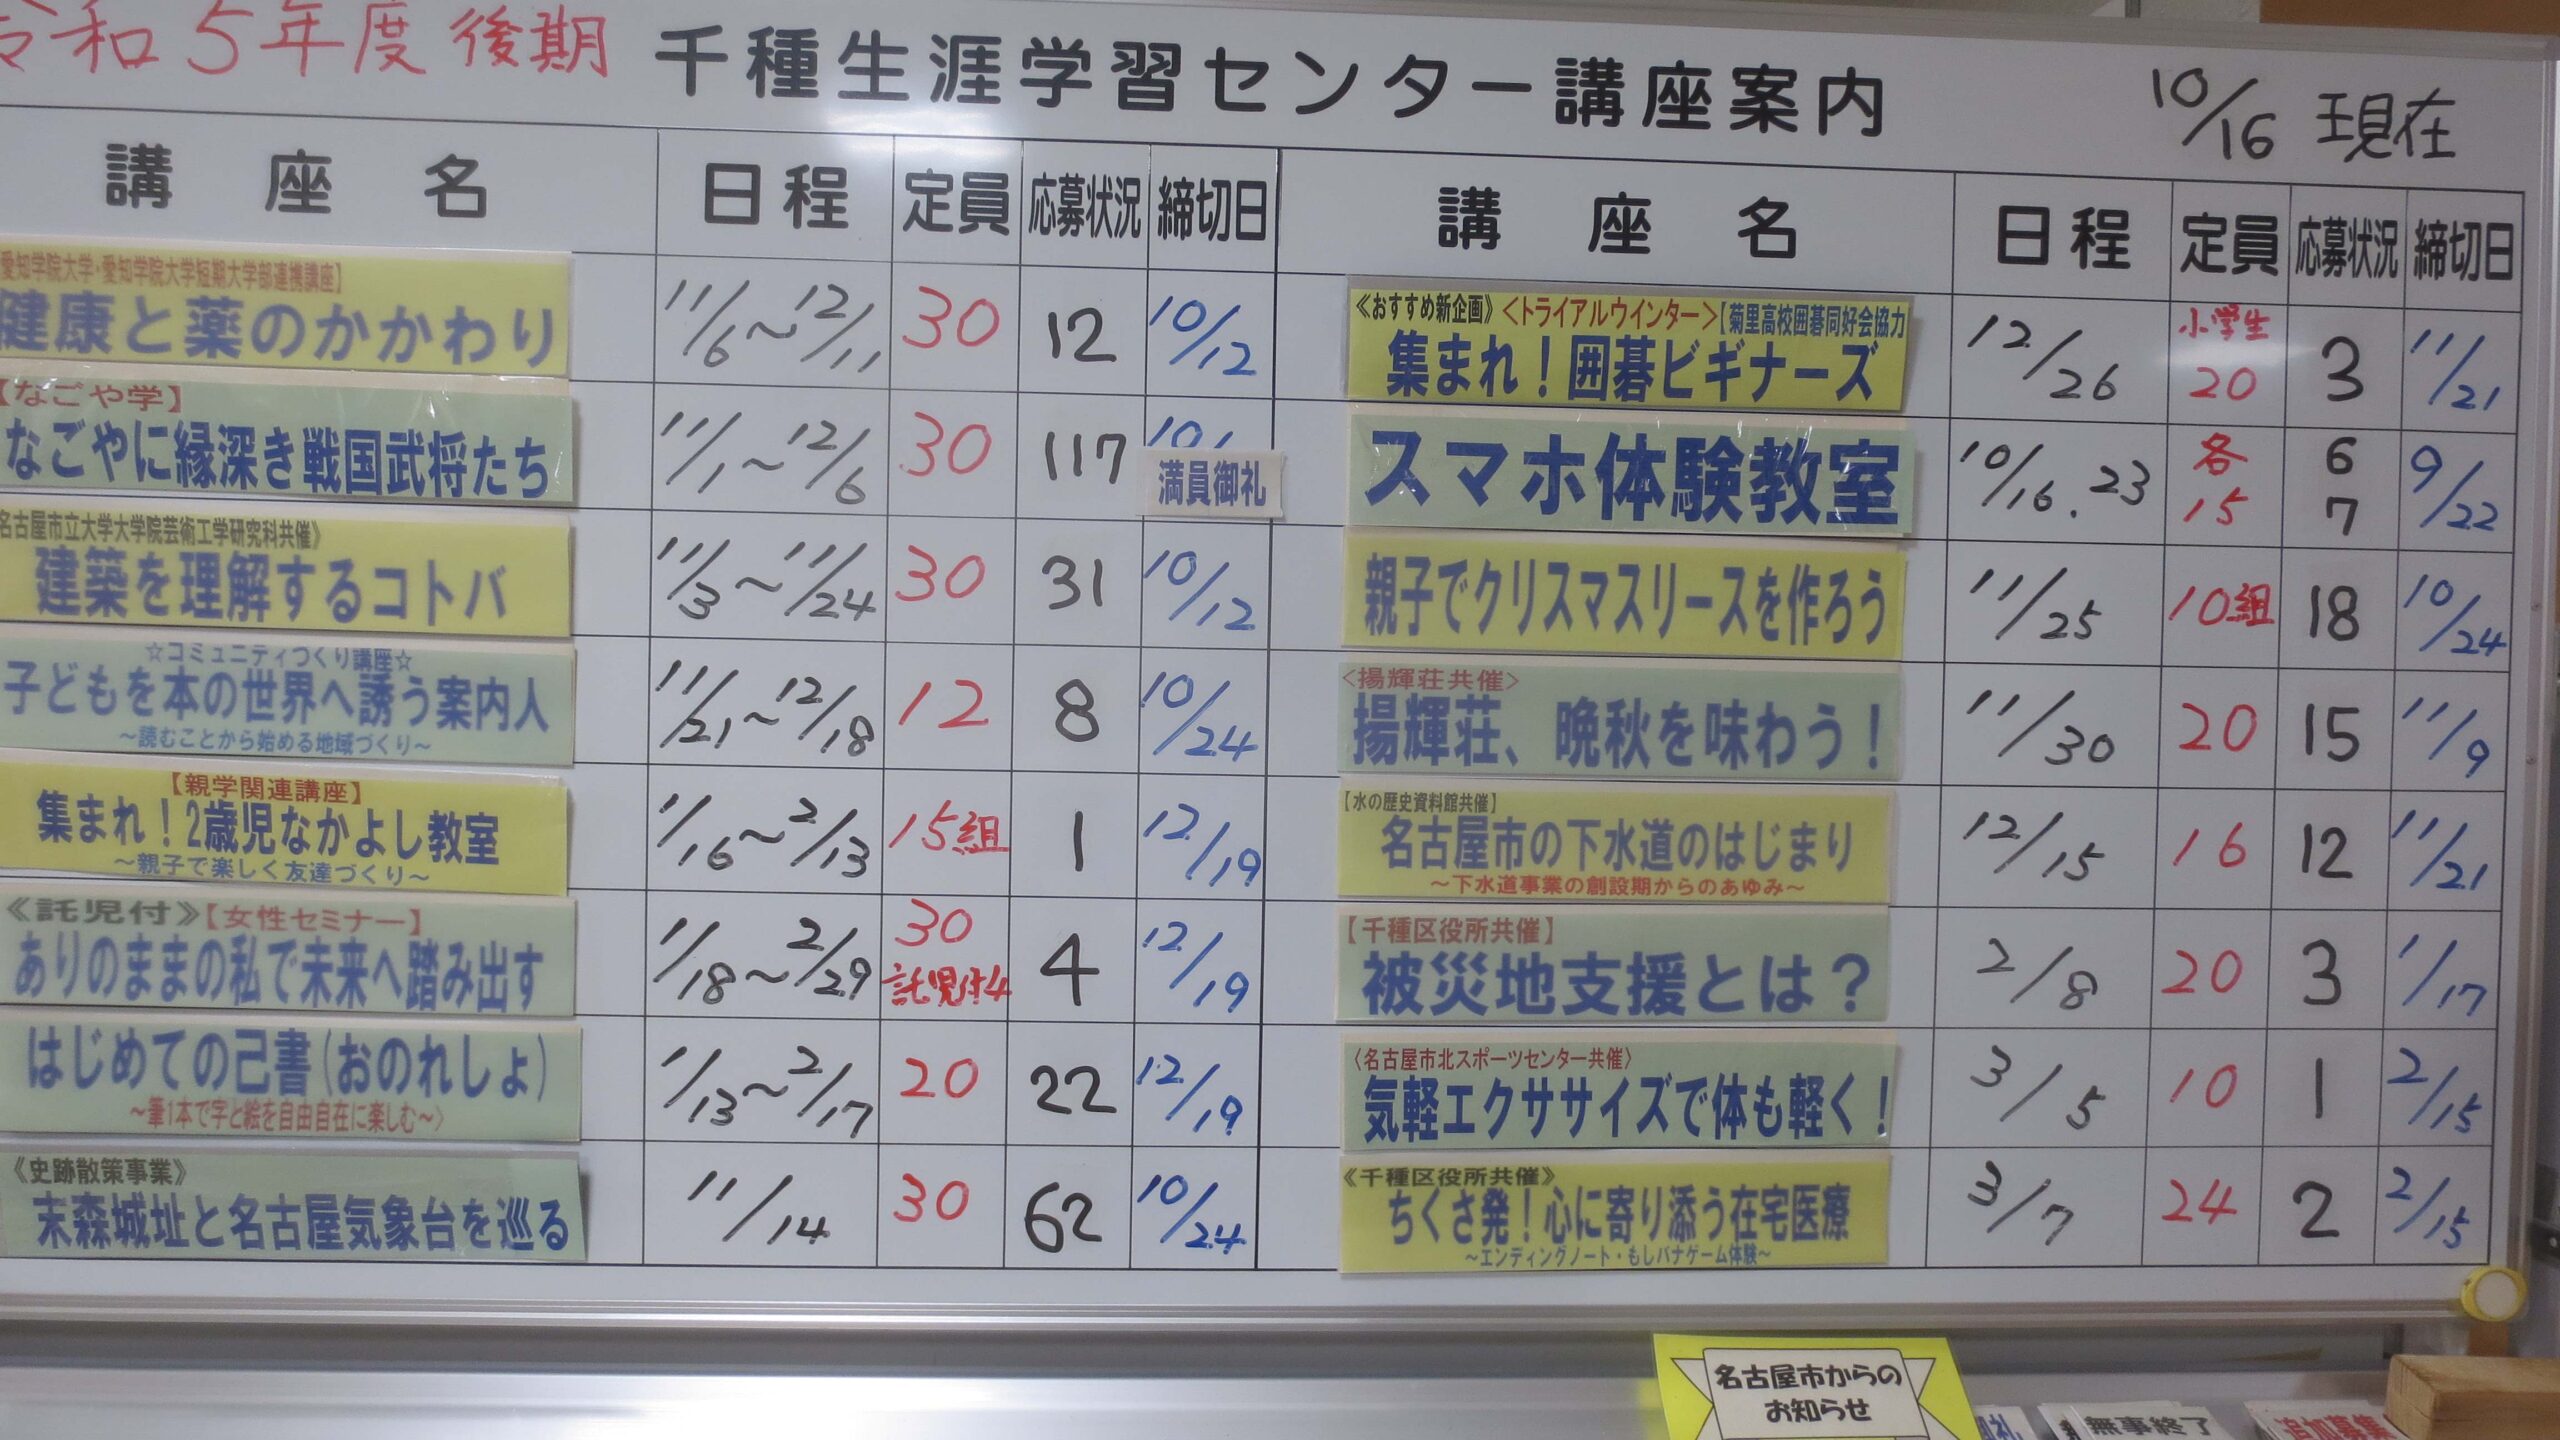 令和5年度 後期 千種生涯学習センター講座案内 10/16 現在
講座名 日程 定員 応募状況 締切日
愛知学院大学・愛知学院大学短期大学部連携講座】
健康と薬のかかわり 11/6～12/11 30 12 10/12
【なごや学】
なごやに縁深き戦国武将たち 11/1～12/6 30 117 10/
満員御礼
名古屋市立大学大学院芸術工学研究科共催》
建築を理解するコトバ 11/3～11/24 30 31 10/12
☆コミュニティづくり講座☆
子どもを本の世界へ誘う案内人 11/21～12/18 12 8 10/24
～読むことから始める地域づくり～
【親学関連講座】
集まれ！2歳児なかよし教室 1/16～2/13 15組 1 12/19
～親子で楽しく友達づくり～
《託児付》【女性セミナー】
ありのままの私で未来へ踏み出す 1/18～2/29 30 託児付4 4 12/19
はじめての己書(おのれしょ) 1/13～2/17 20 22 12/19
～筆1本で字と絵を自由自在に楽しむ～
《史跡散策事業》
末森城址と名古屋気象台を巡る 11/14 30 62 10/24
講座名 日程 定員 応募状況 締切日
《おすすめ新企画》<トライアルウインター>【菊里高校囲碁同好会協力
集まれ！囲碁ビギナーズ 12/26 小学生 20 3 11/21
スマホ体験教室 10/16.23 各15 6 7 9/22
親子でクリスマスリースを作ろう 11/25 10組 18 10/24
<揚輝荘共催>
揚輝荘、晩秋を味わう！ 11/30 20 15 11/9
【水の歴史資料館共催】
名古屋市の下水道のはじまり 12/15 16 12 11/21
～下水道事業の創設期からのあゆみ～
【千種区役所共催】
被災地支援とは？ 2/8 20 3 1/17
〈名古屋市北スポーツセンター共催〉
気軽エクササイズで体も軽く！ 3/5 10 1 2/15
《千種区役所共催》
ちくさ発！心に寄り添う在宅医療 3/7 24 2 2/15
～エンディングノート・もしバナゲーム体験～
名古屋市からの
お知らせ
御礼
無事終了
追加募集